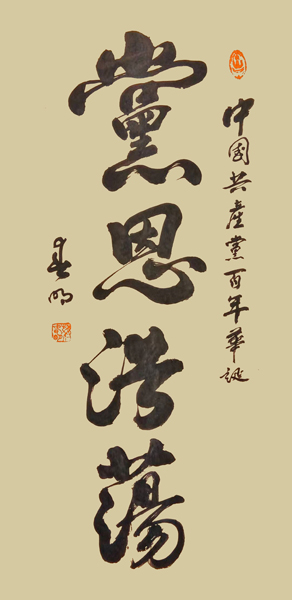 中國共產黨百年華誕
黨恩浩蕩
春明